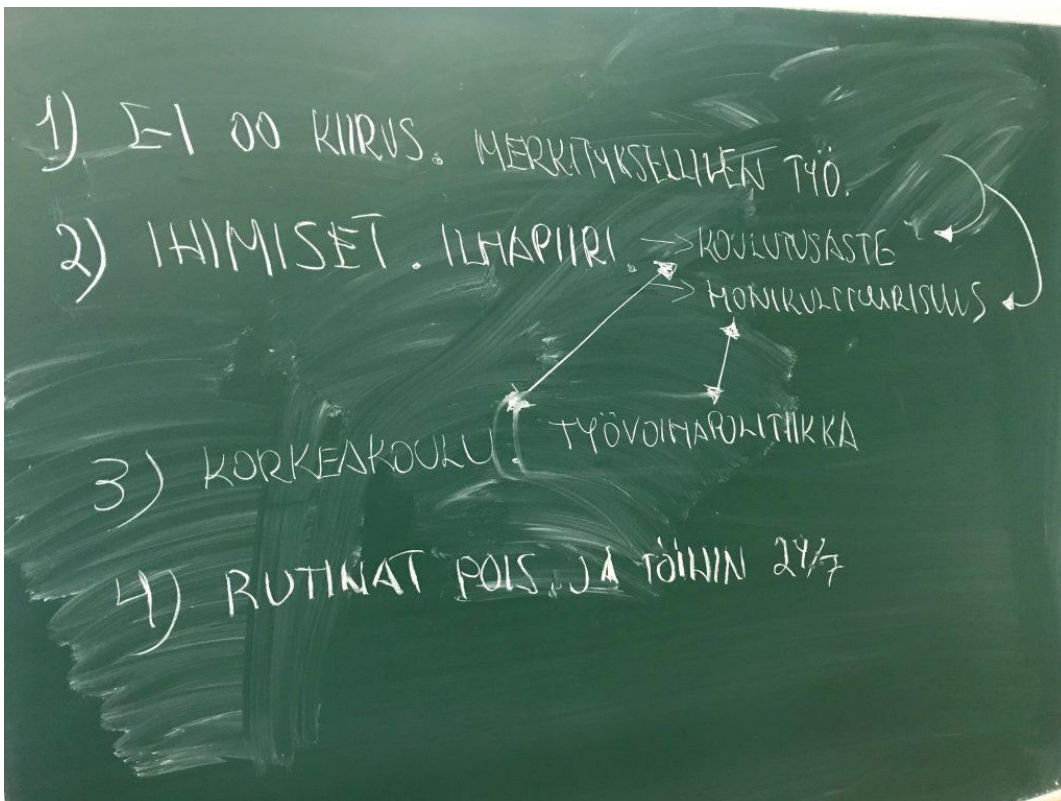 1) EI OO KIIRUS. MERKITYKSELLINEN TYÖ.
2) IHIMISET. ILMAPIIRI. → KOULUTUSASTE
→ MONIKULTTUURISUUS
3) KORKEAKOULU. TYÖVOIMAPOLITIIKKA
4) RUTINAT POIS JA TÖIHIN 24/7